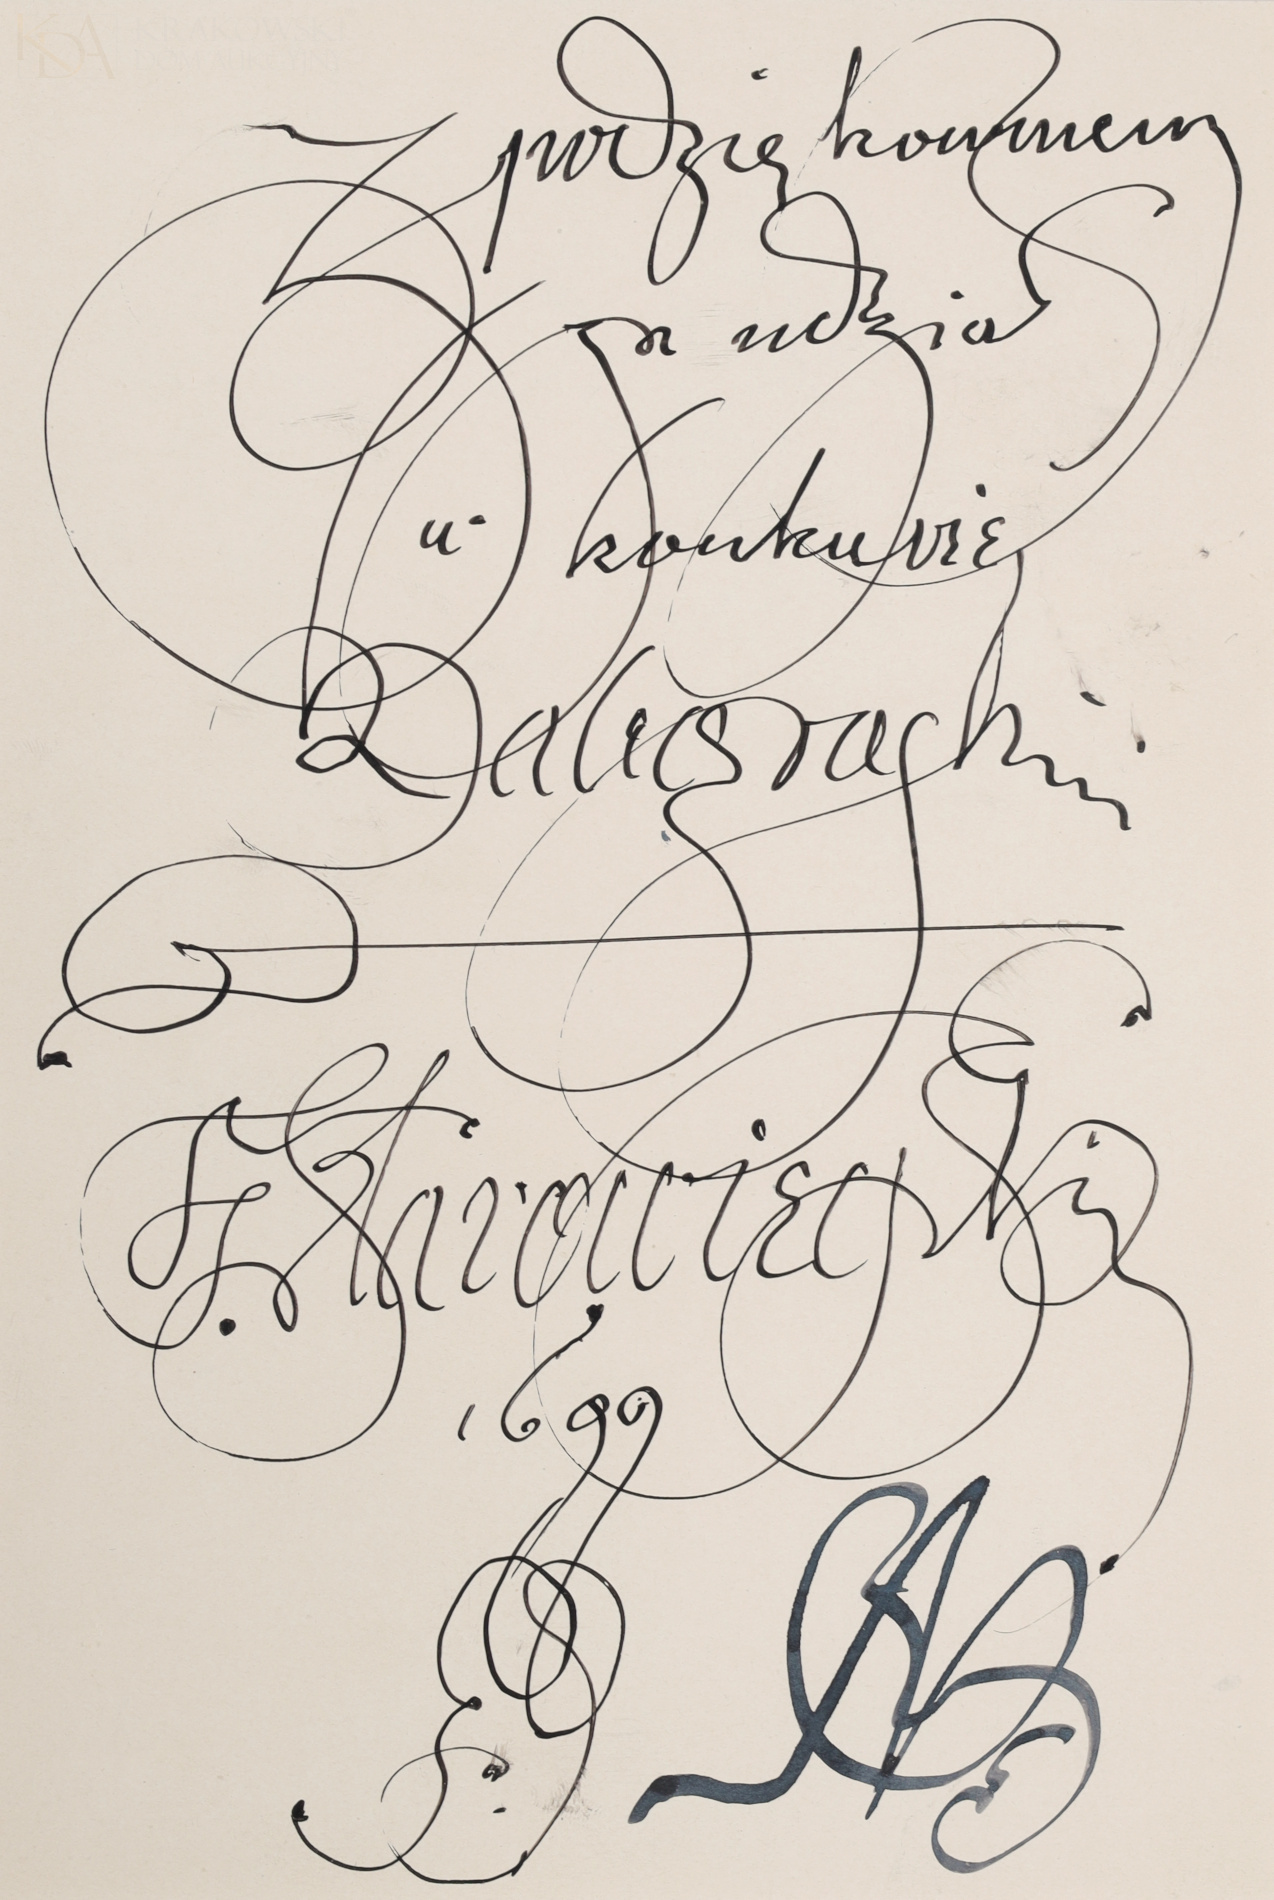 KDA KRAKOWSKI
DOM AUKCYJNY
Z podziękowaniem
za udział
w konkursie
F. Starowieyski
1699